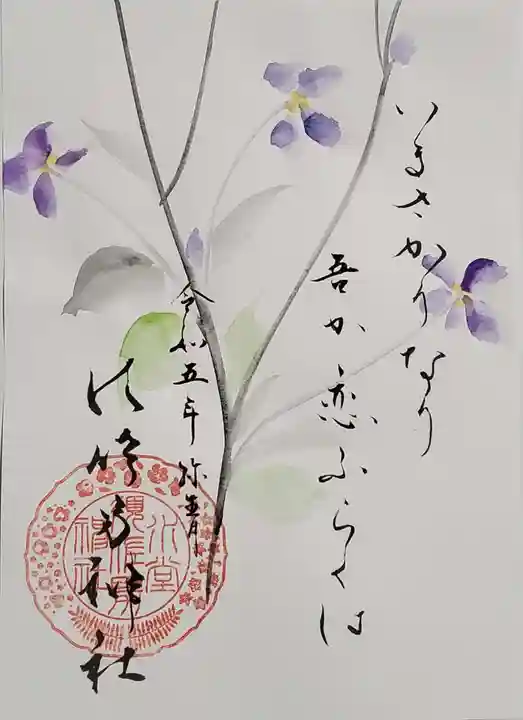 いまさかりなり
吾か恋ふらくは
令和五年 弥生月
神社